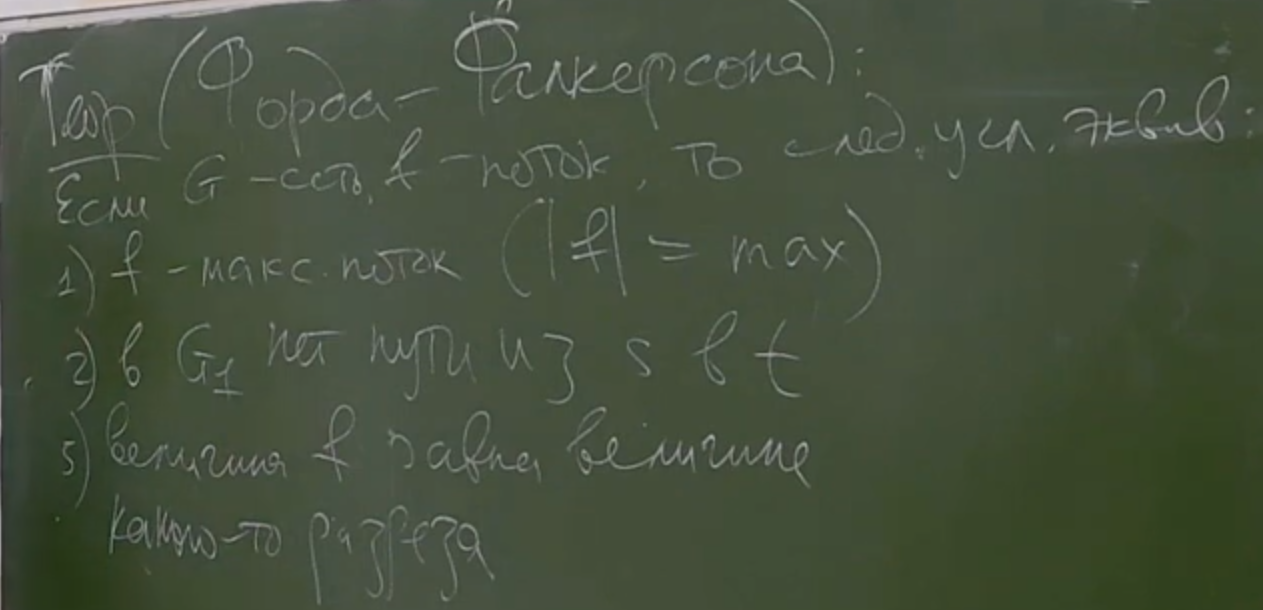 Теор (Форда-Фалкерсона):
Если G - сеть, f - поток, то след. усл. эквив:
1) f - макс. поток (|f| = max)
2) в G1 нет пути из s в t
3) величина f равна величине
какого-то разреза